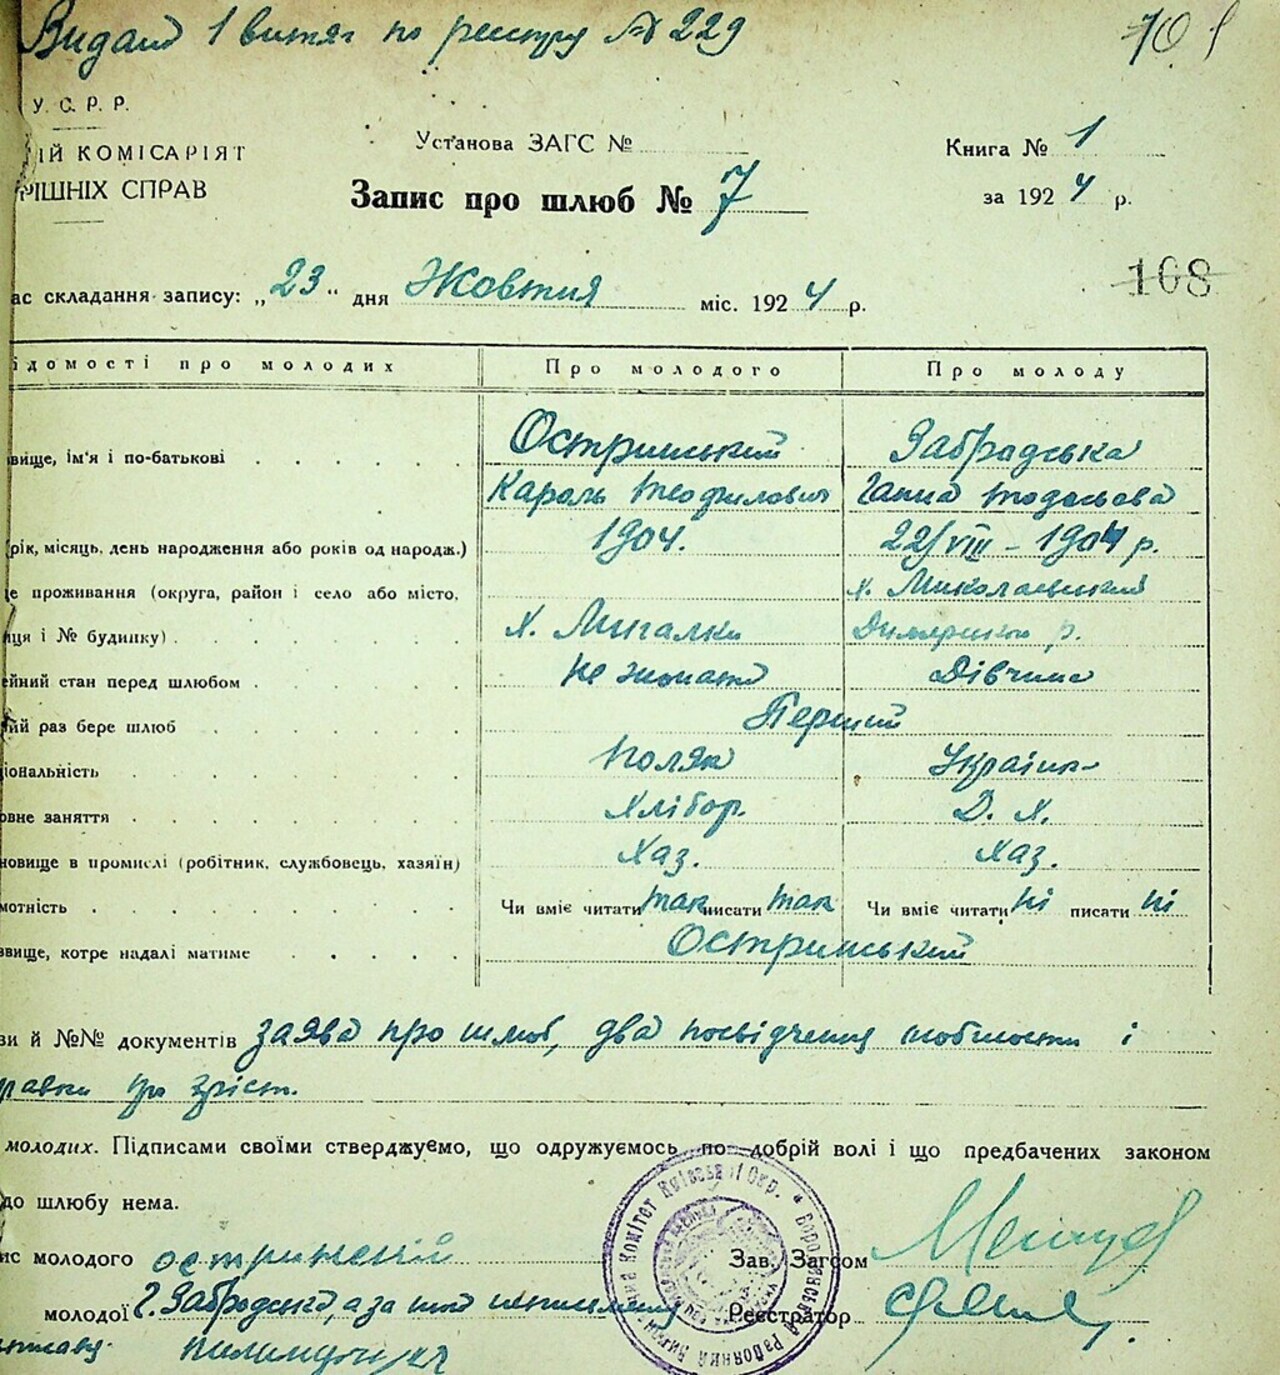 Видано 1 витяг по реєстру № 229
У. С. Р. Р.
ІЙ КОМІСАРІЯТ
РІШНІХ СПРАВ
Установа ЗАГС №
Запис про шлюб № 7
Книга № 1
за 1924 р.
108
ас складання запису: „23" дня Жовтня міс. 1924 р.
ідомості про молодих Про молодого Про молоду
вище, ім'я і по-батькові Остринський Забродська
Кароль Теофилович Ганна Тодосьева
(рік, місяць, день народження або років од народж.) 1904. 22/VIII - 1904 р.
це проживання (округа, район і село або місто, х. Миколаевский
иця і № будинку) х. Мигалки Димерського р.
ейний стан перед шлюбом не жонат Дівчина
ий раз бере шлюб Перший
іональність Поляк Українк
овне заняття Хлібор. Д. Х.
новище в промислі (робітник, службовець, хазяїн) Хаз. Хаз.
мотність Чи вміє читати так писати так Чи вміє читати ні писати ні
звище, котре надалі матиме Остринський
зи й №№ документів заява про шлюб, два посвідчення і
равки про зріст.
молодих. Підписами своїми стверджуємо, що одружуємось по добрій волі і що предбачених законом
до шлюбу нема.
ис молодого остринский Зав. Загсом
молодої Г. Забродська, а за Реєстратор